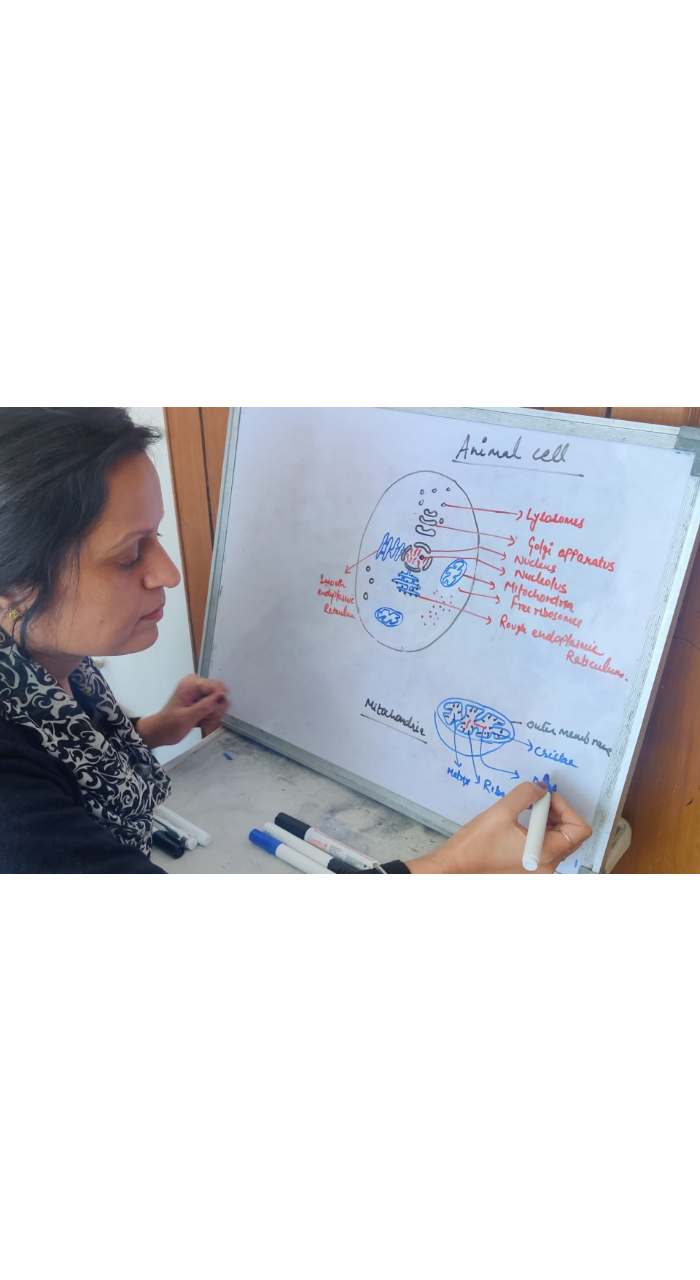 Animal cell
Lysosomes
Golgi apparatus
Nucleus
Nucleolus
Mitochondria
Free ribosomes
Rough endoplasmic
Reticulum.
Smooth
endoplasmic
Mitochondria
outer membrane
Cristae
Matrix
Ribo